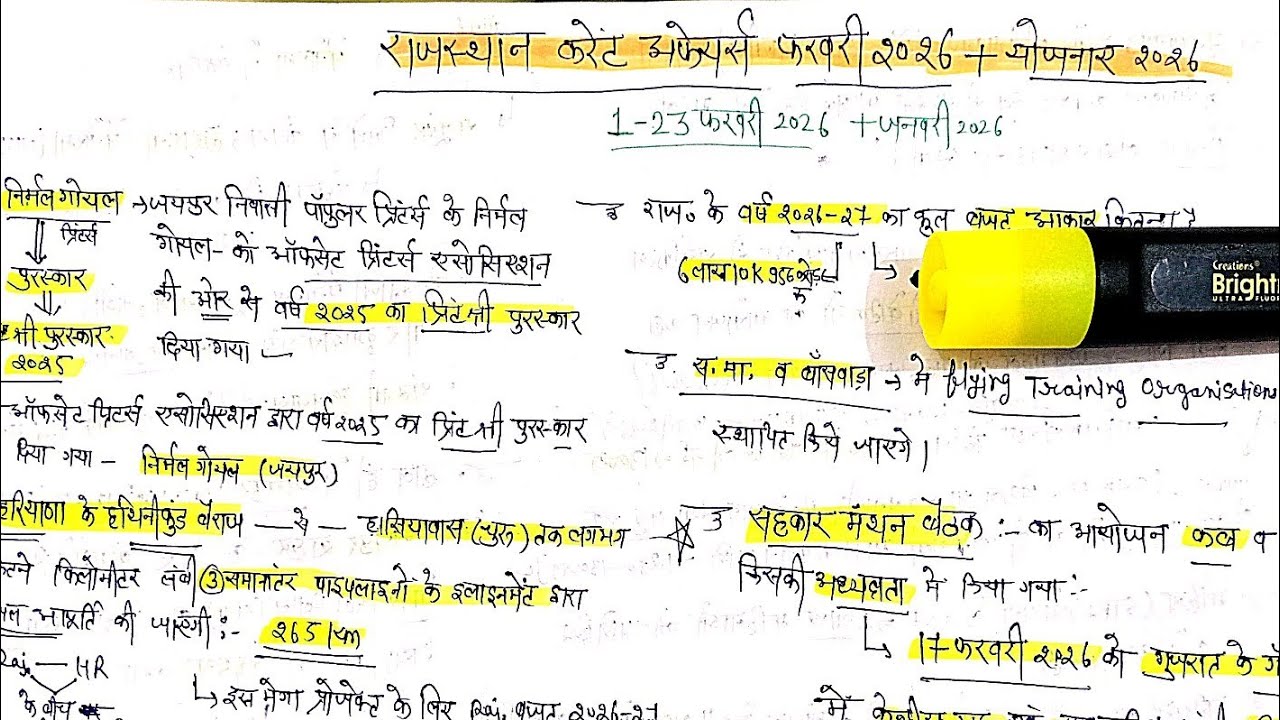 राजस्थान करेंट अफेयर्स फरवरी 2026 + योजनाए 2026
1-23 फरवरी 2026 + जनवरी 2026
निर्मल गोयल → जयपुर निवासी पॉपुलर प्रिंटर्स के निर्मल
प्रिंटर्स
गोयल - को ऑफसेट प्रिंटर्स एसोसिएशन
पुरस्कार
की ओर से वर्ष 2025 का प्रिंटश्री पुरस्कार
श्री पुरस्कार
2025
दिया गया
ऑफसेट प्रिंटर्स एसोसिएशन द्वारा वर्ष 2025 का प्रिंटश्री पुरस्कार
दिया गया - निर्मल गोयल (जयपुर)
हरियाणा के हथिनीकुंड बैराज — से — हासियावास (चुरू) तक लगभग
कितने किलोमीटर लंबी ③ समानांतर पाइपलाइनों के इलाइनमेंट द्वारा
जल आपूर्ति की जाएगी :- 265 km
Raj. — HR
के बीच
↳ इस मेगा प्रोजेक्ट के लिए Raj. बजट 2026-27
उ राज० के वर्ष 2026-27 का कुल बजट आकार कितना ?
6 लाख 10K 956 करोड़
Creations
Bright
ULTRA FLUO
उ. स.मा. व बाँसवाड़ा → मे flying Training Organisations
स्थापित किये जाएगे।
उ सहकार मंथन बैठक :- का आयोजन कब व
किसकी अध्यक्षता मे किया गया :-
↳ 17 फरवरी 2026 को गुजरात के
में केन्द्रीय